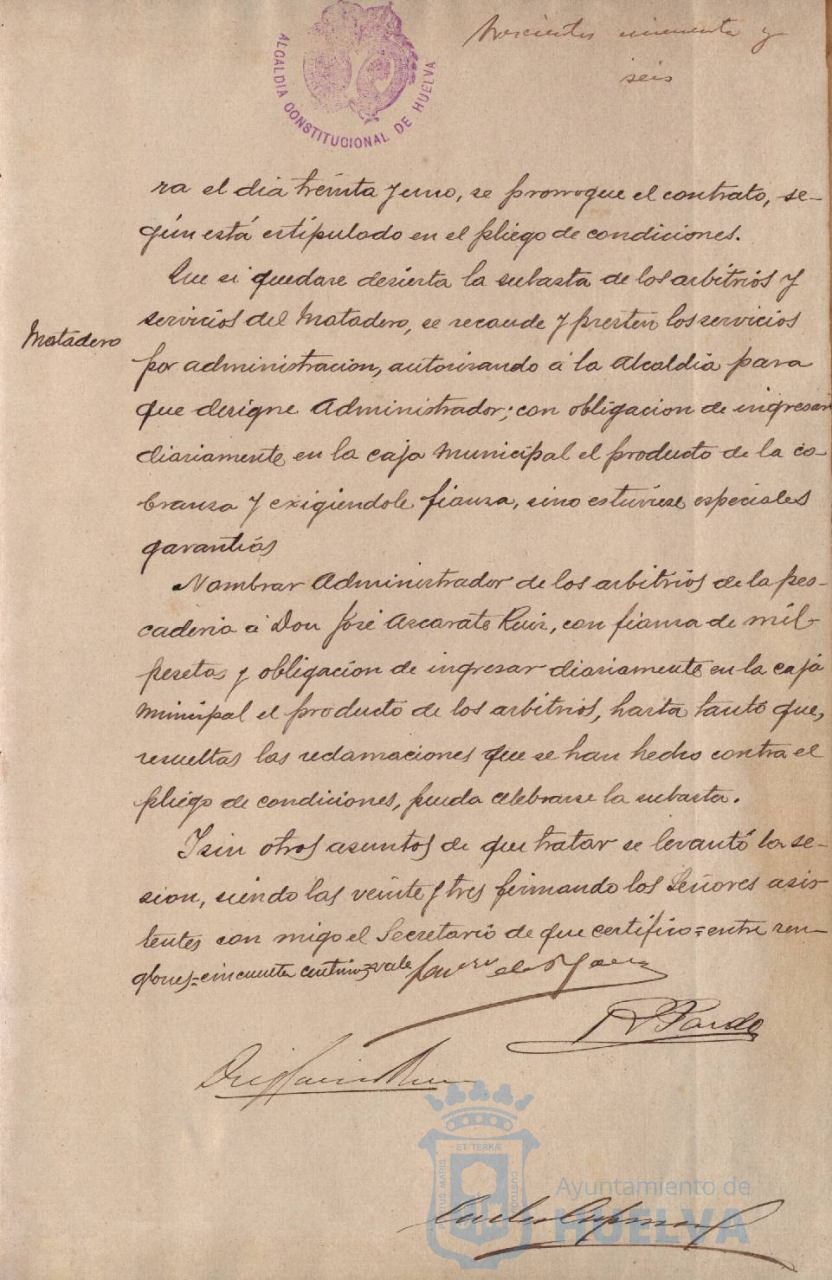 ALCALDIA CONSTITUCIONAL DE HUELVA
trescientos cincuenta y
seis
ra el dia treinta y uno, se prorrogue el contrato, se-
gún está estipulado en el pliego de condiciones.
Que si quedare desierta la subasta de los arbitrios y
Matadero
servicios del Matadero, se recaude y presten los servicios
por administracion, autorisando á la Alcaldia para
que designe Administrador; con obligacion de ingresar
diariamente en la caja municipal el producto de la co-
branza y exigiendole fianza, sino estuviese especiales
garantias
Nombrar Administrador de los arbitrios de la pes-
caderia á Don José Ascarate Ruiz, con fianza de mil
pesetas y obligacion de ingresar diariamente en la caja
municipal el producto de los arbitrios, hasta tanto que,
resueltas las reclamaciones que se han hecho contra el
pliego de condiciones, pueda celebrarse la subasta.
Y sin otros asuntos de que tratar se levantó la se-
sion, siendo las veinte y tres firmando los Señores asis-
tentes con migo el Secretario de que certifico = entre ren-
glones = cincuenta centimos = vale
R Pardo
ET TERRÆ
CUSTODIA
Ayuntamiento de
HUELVA